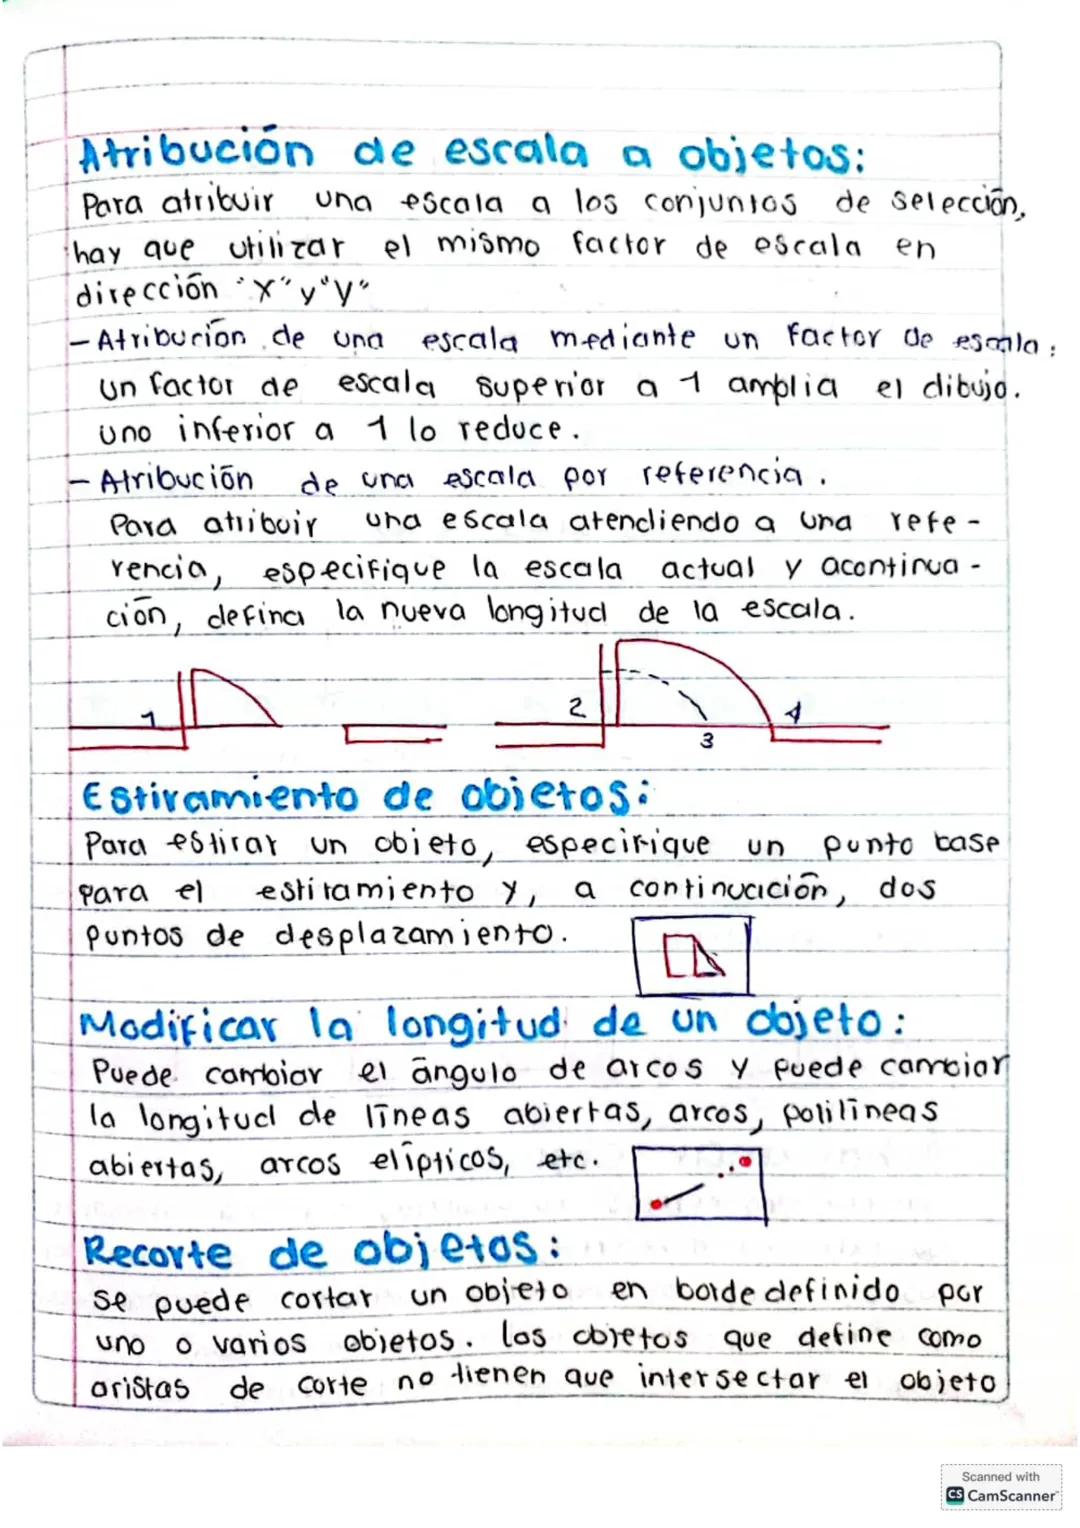 Atribución de escala a objetos:
Para atribuir una escala a los conjuntos de selección,
hay que utilizar el mismo factor de escala en
dirección "X" y "Y"
- Atribución de una escala mediante un factor de escala:
un factor de escala superior a 1 amplia el dibujo.
uno inferior a 1 lo reduce.
- Atribución de una escala por referencia.
Para atribuir una escala atendiendo a una refe-
rencia, especifique la escala actual y acontinua-
ción, defina la nueva longitud de la escala.
1 2 3 4
Estiramiento de objetos:
Para estirar un objeto, especifique un punto base
para el estiramiento y, a continuación, dos
puntos de desplazamiento.
Modificar la longitud de un objeto:
Puede cambiar el ángulo de arcos y puede cambiar
la longitud de líneas abiertas, arcos, polilíneas
abiertas, arcos elípticos, etc.
Recorte de objetos:
se puede cortar un objeto en borde definido por
uno o varios objetos. los objetos que define como
aristas de corte no tienen que intersectar el objeto
Scanned with
CS CamScanner